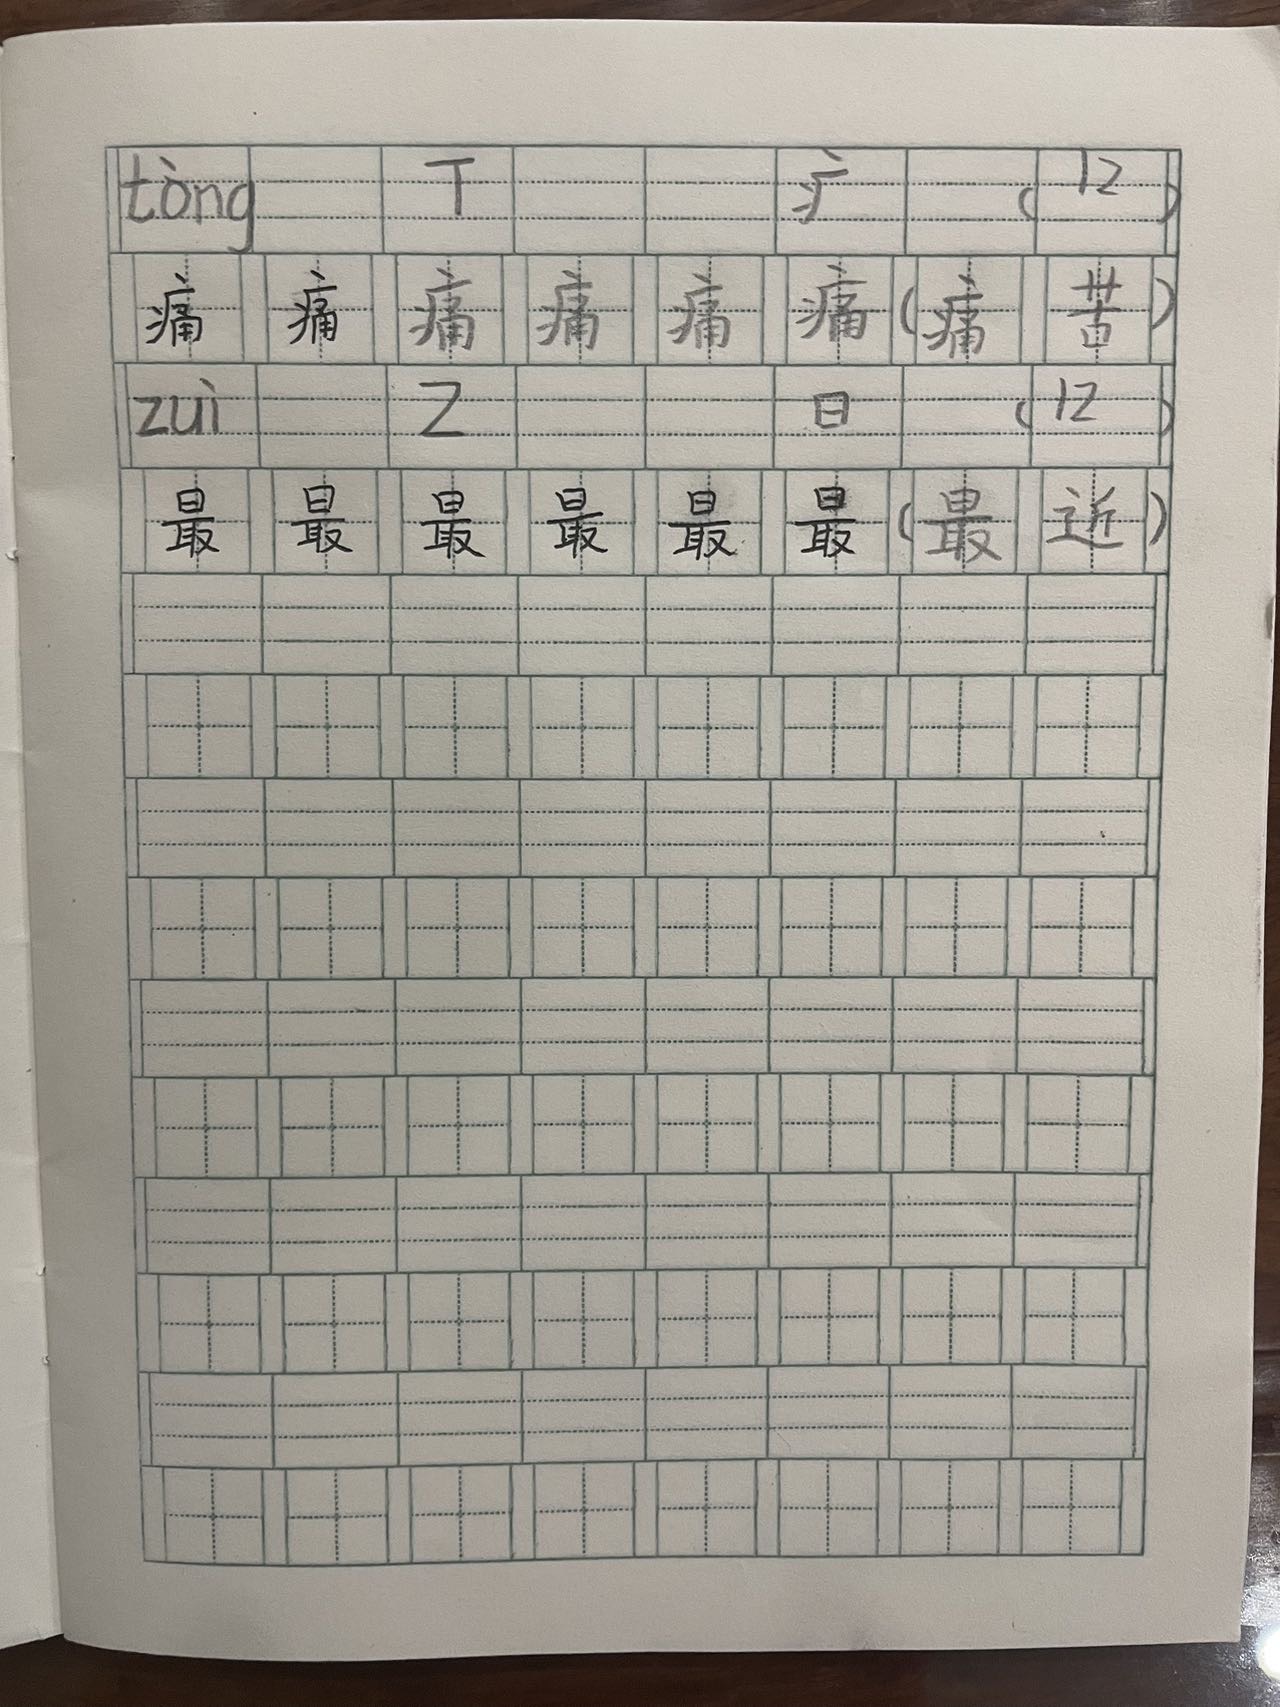 tòng T 疒 (12)
痛 痛 痛 痛 痛 痛 (痛 苦)
zuì Z 日 (12)
最 最 最 最 最 最 (最 近)